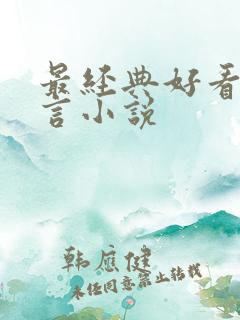 最经典好看
言小说
韩应健
未经同意禁止转载